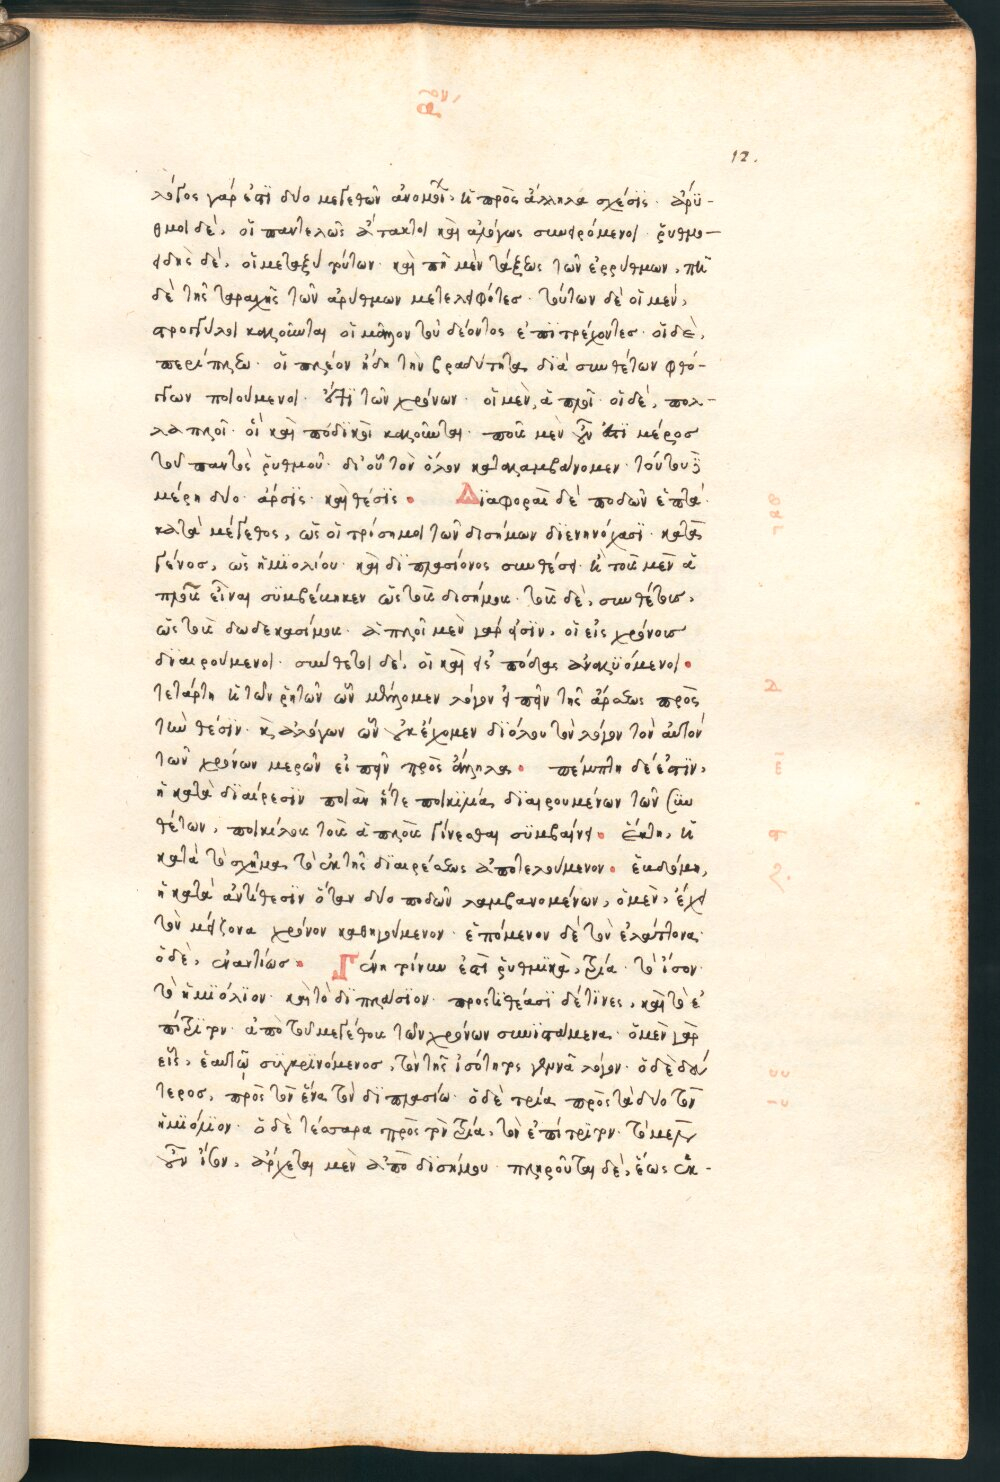 12.
λόγος γάρ ἐστὶ δύο μεγεθῶν ἀνομοί, κ πρὸς ἄλληλα σχέσϊς · ἄρϋ-
θμοι δὲ, οἱ παντελῶς ἄτακτοι καὶ ἀλόγως συνφρόμενοι · ῥυθμο-
ειδεῖς δὲ, οἱ μεταξὺ τούτων · καὶ πῆ μὲν τάξεως τῶν ἐρρύθμων, πῆ
δὲ τῆς ταραχῆς τῶν ἀρύθμων μετειληφότες · τούτων δὲ οἱ μὲν,
στρογγύλοι καλοῦνται οἱ μᾶλλον τοῦ δέοντος ἐπϊτρέχοντες · οἱ δὲ,
περίπλεω · οἱ πλέον ἤδη τὴν βραδυτῆτα διὰ συνθέτων φθό-
γγων ποιούμενοι · ἔτι τῶν χρόνων · οἱ μὲν, ἁπλοῖ · οἱ δὲ, πολ-
λαπλοῖ · οἳ καὶ ποδικοὶ καλοῦνται · ποῦς μὲν οὖν ἐστὶ μέρος
τοῦ παντὸς ῥυθμοῦ · δι' οὗ τὸν ὅλον καταλαμβάνομεν · τούτου δὲ
μέρη δύο · ἄρσϊς · καὶ θέσϊς · Δϊαφοραὶ δὲ ποδῶν ἑπτά ·
κατὰ μέγεθος, ὡς οἱ τρίσημοι τῶν δισήμων διενηνόχασϊ · κατὰ
γένος, ὡς ἡμϊολίου · καὶ διπλασίονος συνθέσει · κ τοῖς μὲν ἁ
πλοῖς εἶναι συμβέβηκεν ὡς τοῖς δισήμοις · τοῖς δὲ, συνθέτοις,
ὡς τοῖς δωδεκασήμοις · ἁπλοῖ μὲν γάρ εἰσϊν, οἱ εἰς χρόνους
διαιρούμενοι · σύνθετοι δὲ, οἱ καὶ εἰς πόδας ἀναλυόμενοι ·
τετάρτη κ τῶν ῥητῶν ὧν μὲν ἔχομεν λόγον εἰπεῖν τῆς ἄρσεως πρὸς
τὴν θέσϊν · κ ἀλόγων ὧν οὐκ ἔχομεν διόλου τὸν λόγον τὸν αὐτὸν
τῶν χρόνων μερῶν εἰπεῖν πρὸς ἄλληλα · πέμπτη δέ ἐστϊν,
ἡ κατὰ διαίρεσϊν ποιὰν ἥτε ποικιλία διαιρουμένων τῶν συν
θέτων, ποικίλοις τοῖς ἁπλοῖς γίνεσθαι συμβαίνει · ἕκτη, κ
κατὰ τὸ σχῆμα τὸ ἐκ τῆς διαιρέσεως ἀποτελούμενον · ἑβδόμη,
ἡ κατὰ ἀντίθεσϊν ὅταν δύο ποδῶν λαμβανομένων, ὁ μὲν, ἔχει
τὸν μείζονα χρόνον καθηγούμενον · ἑπόμενον δὲ τὸν ἐλάττονα ·
ὁ δὲ, ἐναντίως · Γένη τοίνυν ἐστὶ ῥυθμϊκὰ, τρία · τὸ ἴσον ·
τὸ ἡμϊόλϊον · καὶ τὸ διπλάσϊον · προστιθέασϊ δέ τϊνες, καὶ τὸ ἐ
πίτρϊτον · ἀπὸ τοῦ μεγέθους τῶν χρόνων συνιστάμενα · ὁ μὲν γὰρ
εἷς, ἑαυτῷ συγκρϊνόμενος, τὸν τῆς ἰσότητος γεννᾶ λόγον · ὁ δὲ δεύ
τερος, πρὸς τὸν ἕνα τὸν διπλασίω · ὁ δὲ τρία πρὸς τὰ δύο τὸν
ἡμϊόλϊον · ὁ δὲ τέσσαρα πρὸς τὸν τρία, τὸν ἐπίτρϊτον · τὸ μὲν
οὖν ἴσον, ἄρχεται μὲν ἀπὸ δισήμου · πληροῦται δὲ, ἕως ἑκ-